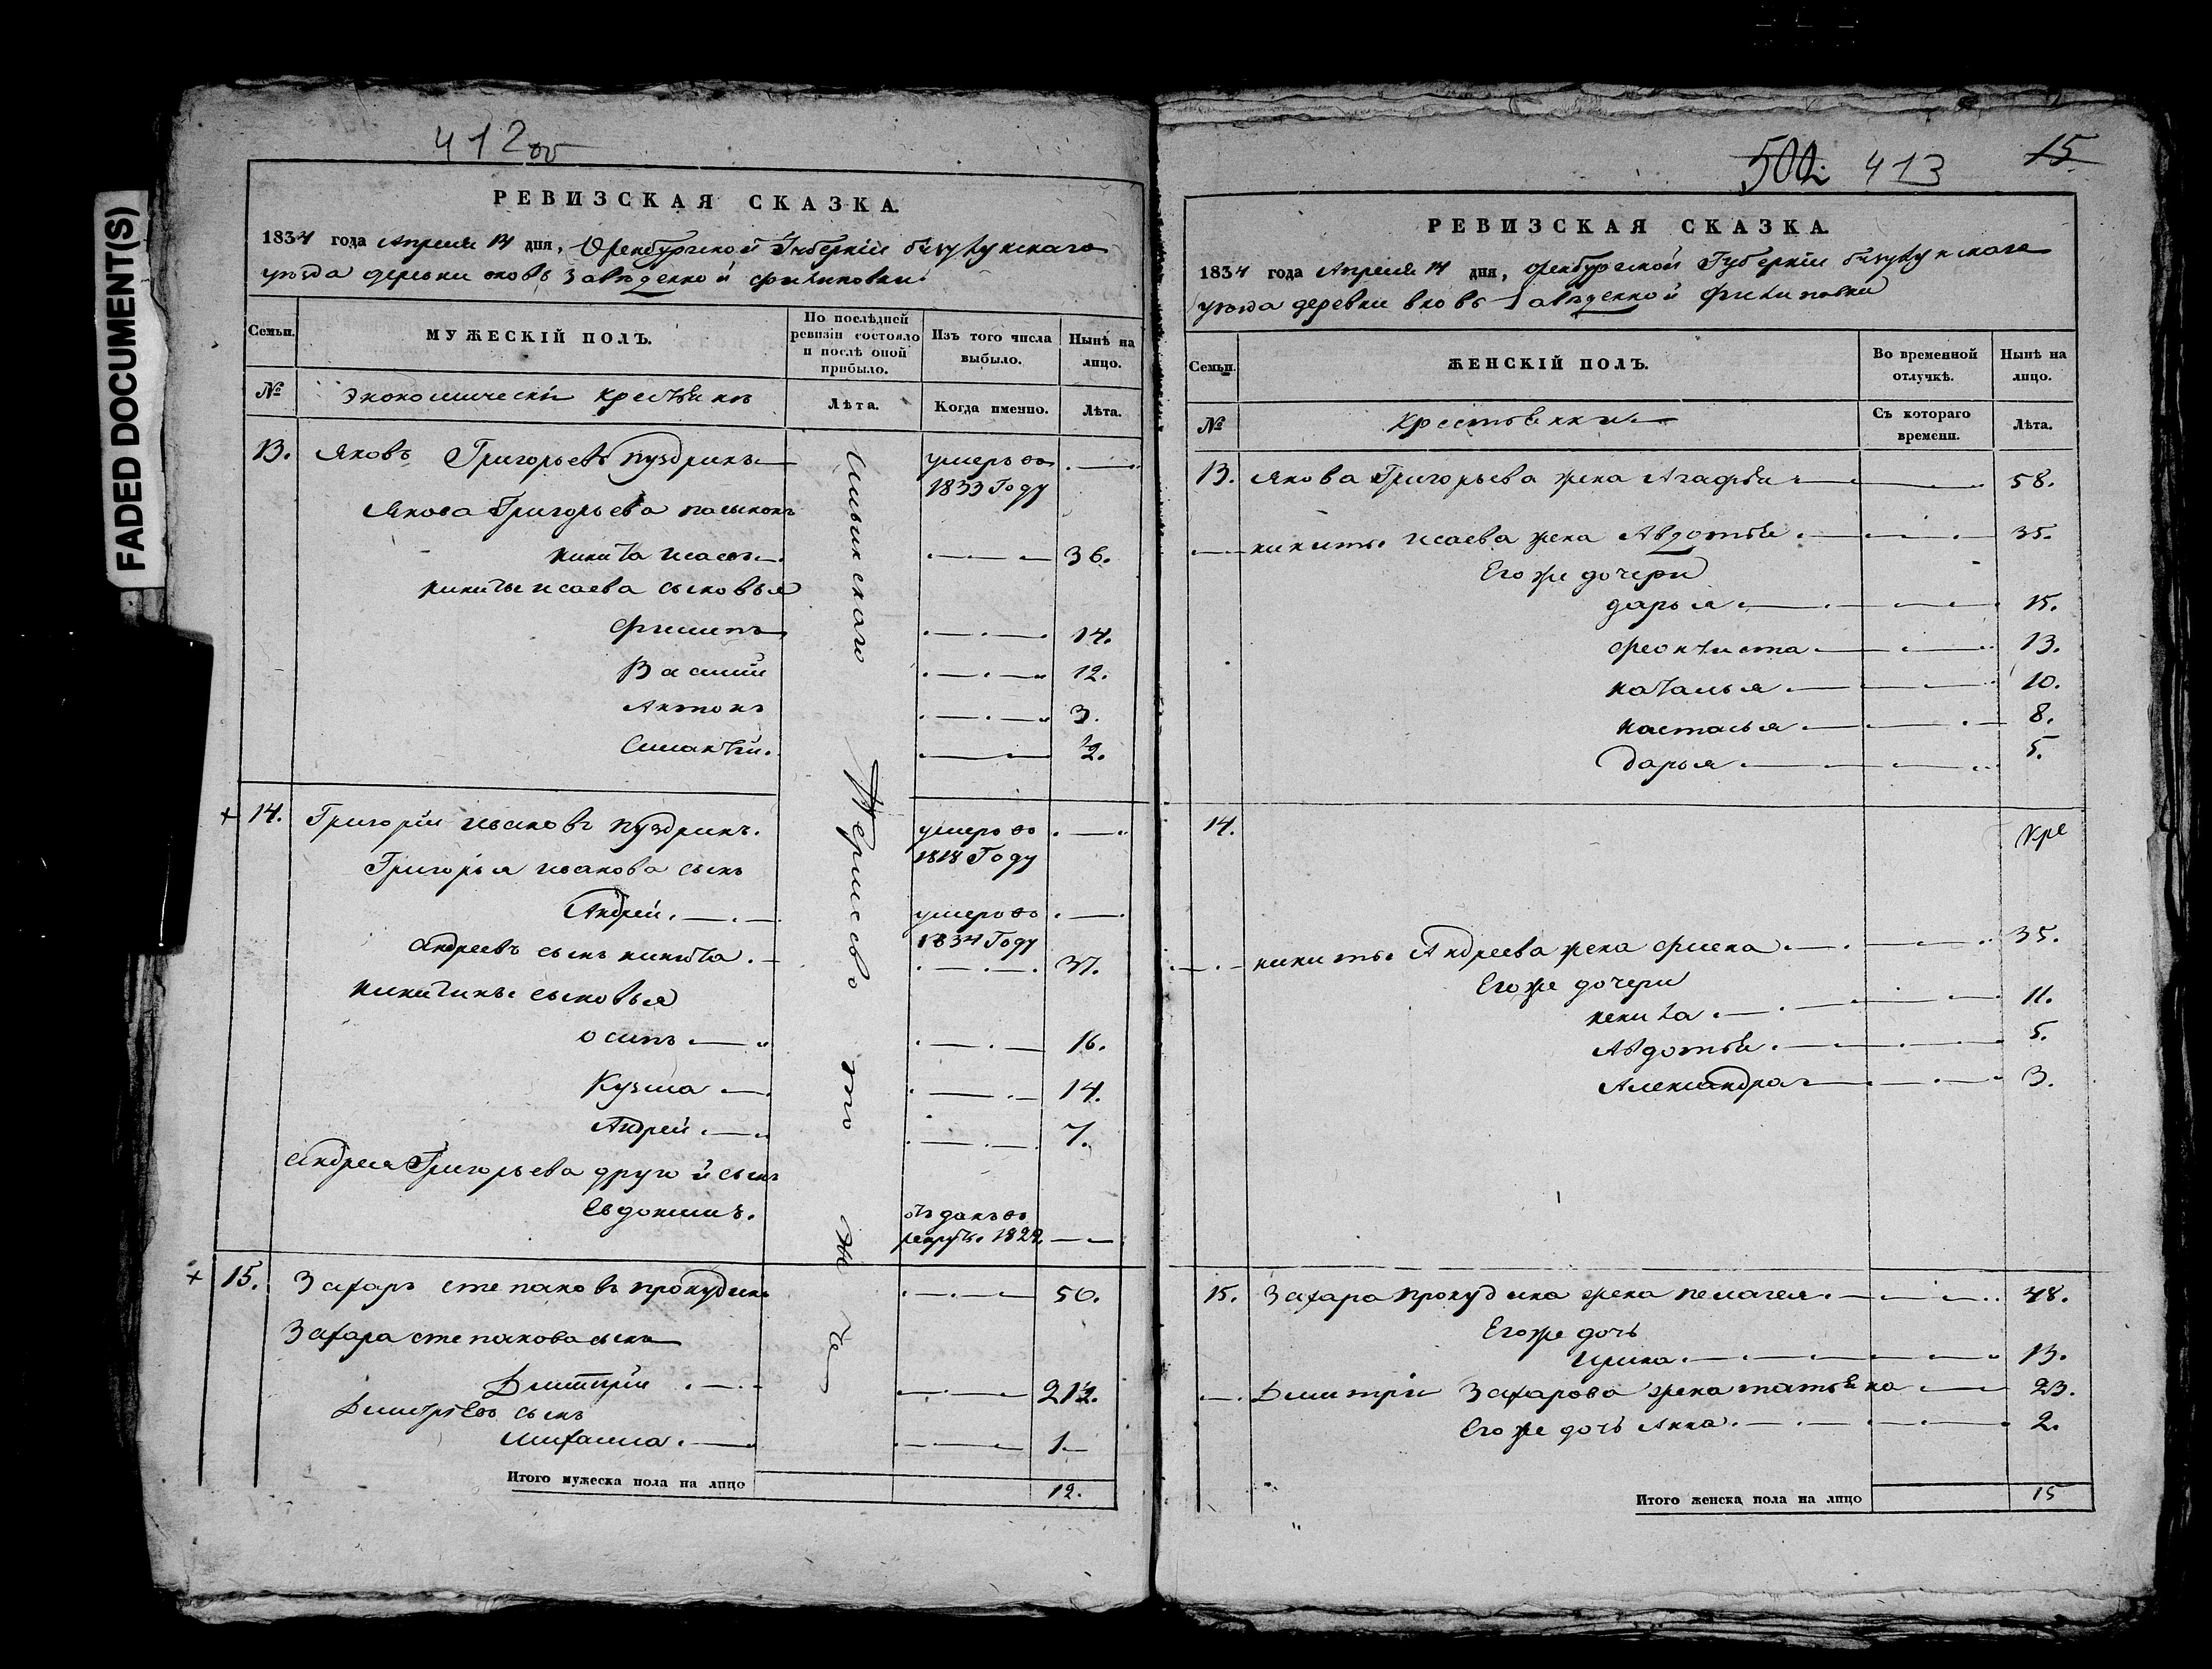 FADED DOCUMENT(S)
412 об
РЕВИЗСКАЯ СКАЗКА.
1834 года Апреля 14 дня, Оренбургской Губернiи бузулукскаго
уезда деревни вновь Заведенной филиповки
Семьи.
МУЖЕСКIЙ ПОЛЪ.
По послѣдней ревизiи состояло и послѣ оной прибыло.
Изъ того числа выбыло.
Нынѣ на лицо.
№
экономически крестьянъ
Лѣта.
Когда именно.
Лѣта.
13. Яковъ Григорьевъ пуздринъ умеръ въ
1833 Году
Якова Григорьева пасынокъ
никита исаевъ 36.
никиты исаева сыновья
Филипъ 14.
Василий 12.
Антонъ 3.
½.
+ 14. Григорiй ивановъ пуздринъ. умеръ во
1818 Году
Григорья иванова сынъ
Андрей. умеръ во
1834 Году
андреевъ сынъ никита. 37.
никитины сыновья
осипъ 16.
Кузма 14.
Андрей 7.
андрея Григорьева другой сынъ
Евдокимъ. отданъ въ
рекруты
+ 15. Захаръ степановъ прокудинъ 50.
Захара степанова сынъ
Дмитрiй 21½.
Дмитрiевъ сынъ
михаила 1
то же
Итого мужеска пола на лицо 12.
500. 413 15
РЕВИЗСКАЯ СКАЗКА.
1834 года Апреля 14 дня, оренбургской Губернiи бузулукскаго
уезда деревни вновь Заведенной филиповки
Семьи.
ЖЕНСКIЙ ПОЛЪ.
Во временной отлучкѣ.
Нынѣ на лицо.
№
крестьянки
Съ котораго времени.
Лѣта.
13. Якова Григорьева жена Агафья 58.
никиты исаева жена Авдотья 35.
Его же дочери
дарья 15.
феоктиста 13.
наталья 10.
настасья 8.
Дарья 5.
14.
никиты Андреева жена 35.
Его же дочери
11.
Авдотья 5.
Александра 3.
15. Захара прокудина жена пелагея 48.
Его же дочь
Ирина 13.
Дмитрiя Захарова жена татьяна 23.
Его же дочь Анна. 2.
Итого женска пола на лицо 15